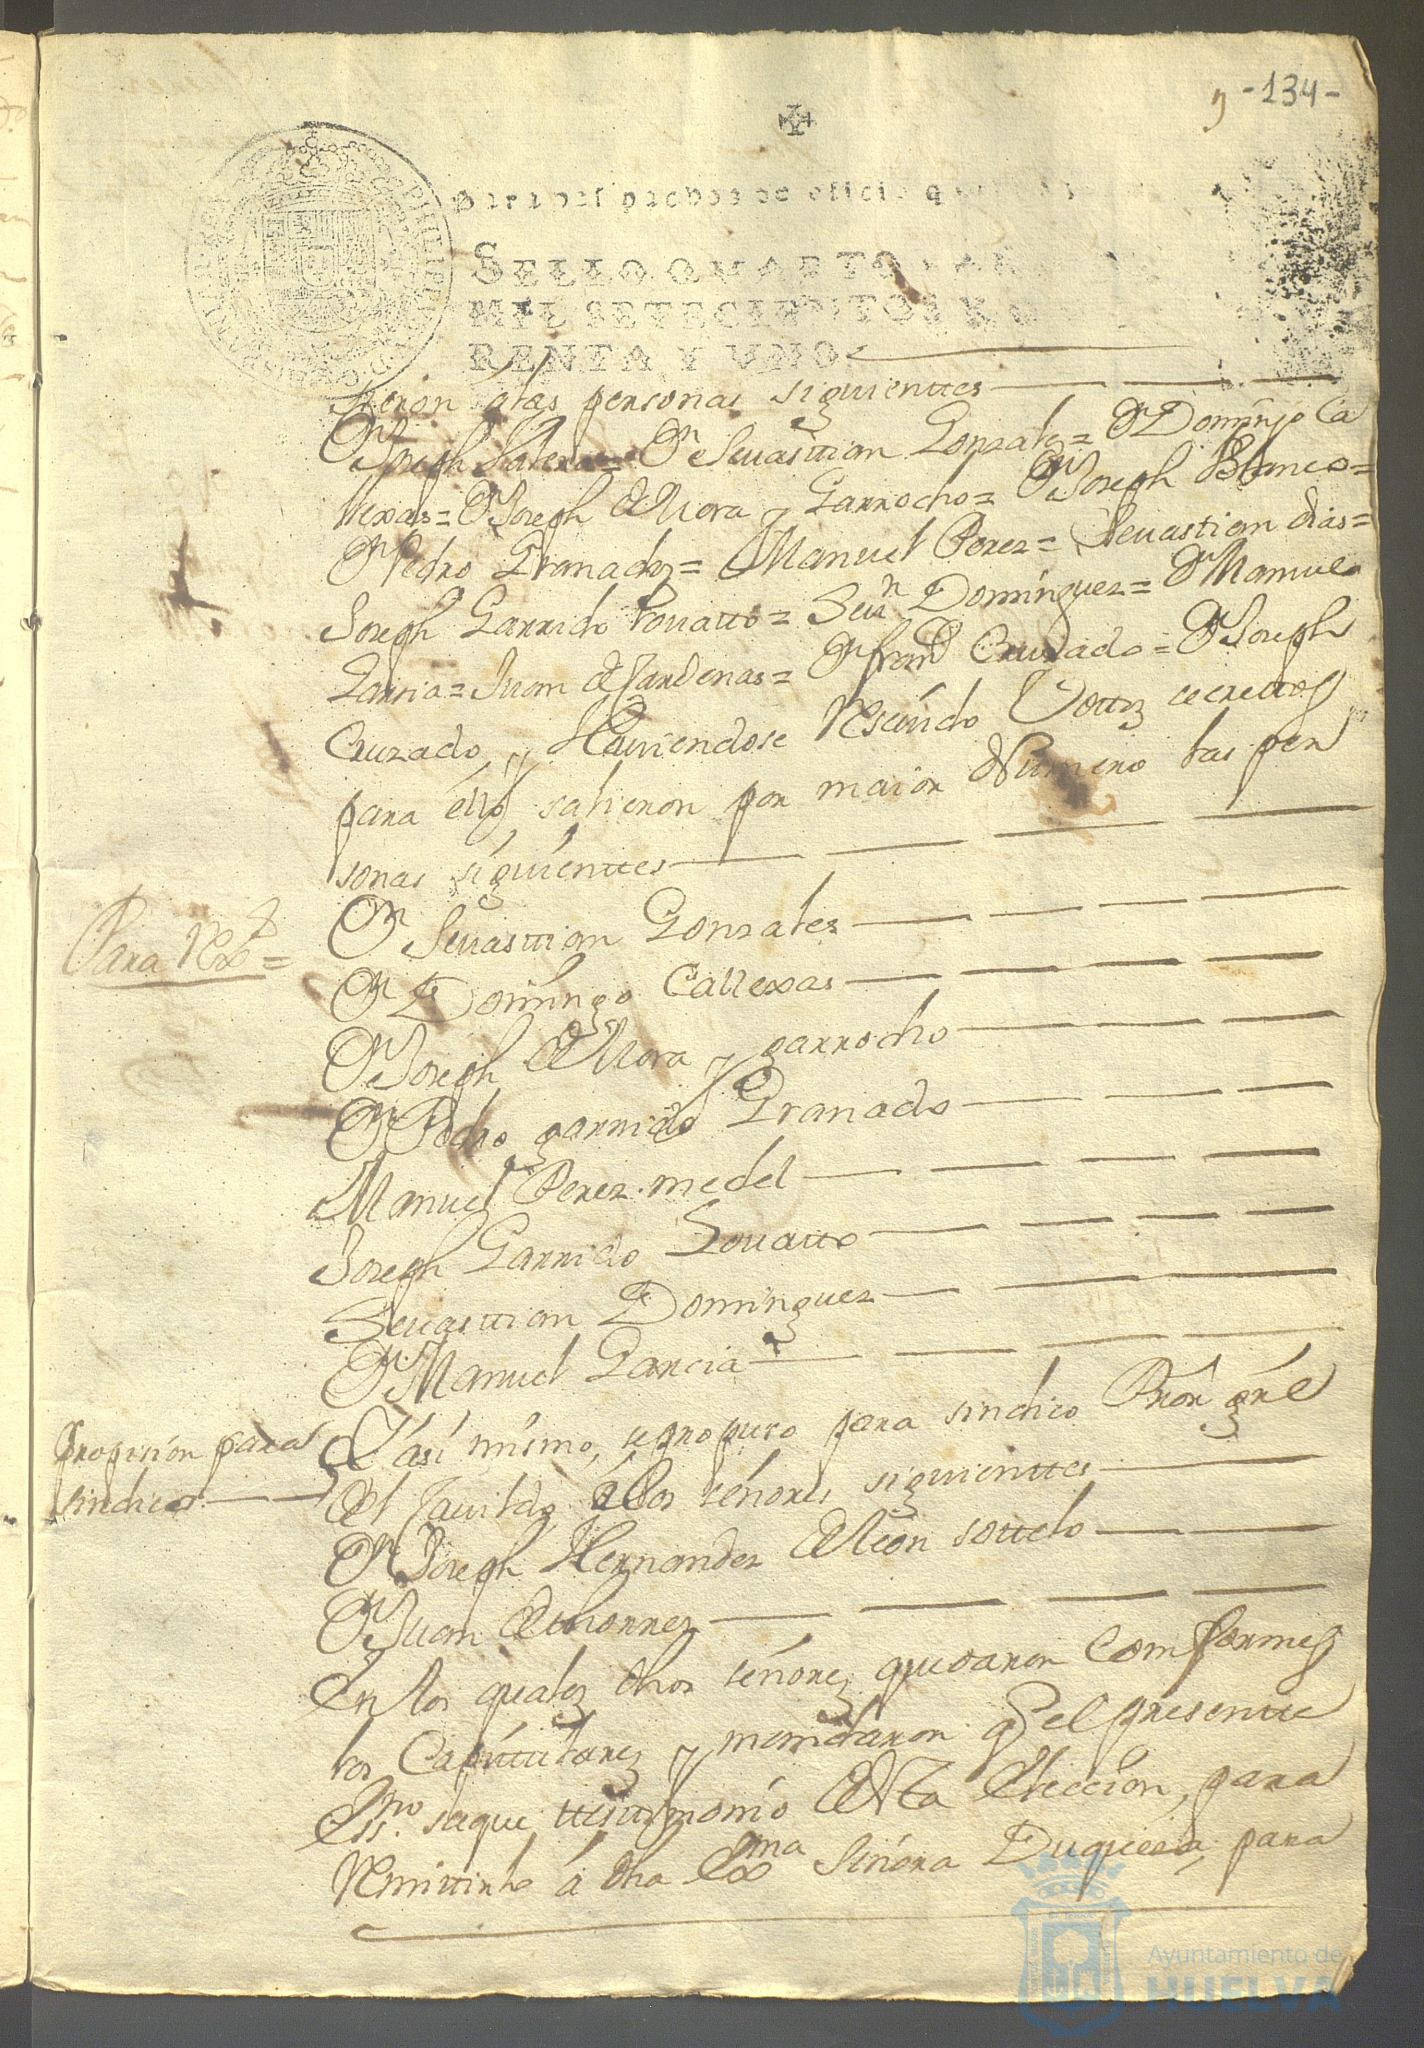 -134-
para despachos de oficio q
SELLO QUARTO, AÑ
MIL SETECIENTOS Y
RENTA Y UNO.
sieron a las personas siguienttes
Dn Joseph = Dn Sevasttian Gonzalez = Dn Domingo Ca
llexas = Dn Joseph de Mora y Garrocho = Dn Joseph Blanco =
Dn Pedro Granado = Manuel Perez = Sevastian dias =
Joseph Garrido Lovatto = Sevn Dominguez = Dn Manuel
Garcia = Juan de Cardenas = Dn franco Cruzado = Dn Joseph
Cruzado, y Haviendose Resevido Vottos secrettos
para ello, salieron por maior Numero las per
sonas siguienttes
Para Rex =
Dn Sevasttian Gonzales
Dn Domingo Callexas
Dn Joseph de Mora y garrocho
Dn Pedro garrido Granado
Manuel Perez medel
Joseph Garrido Lovatto
Sevasttian Dominguez
Dn Manuel Garcia
Propisión para
sindico
Y así mismo, se propuso para sindico Pror gral
del Cavildo â los señores siguienttes
Dn Joseph Hernandez de León sottelo
Dn Juan de thorres
en los quales dhos señores quedaron Comformes
los Capittulares y mandaron q el presentte
Essno. saque ttesttimonio de Sta Elección, para
Remittirlo á dha Exma Señora Duquesa, para
Ayuntamiento de
HUELVA